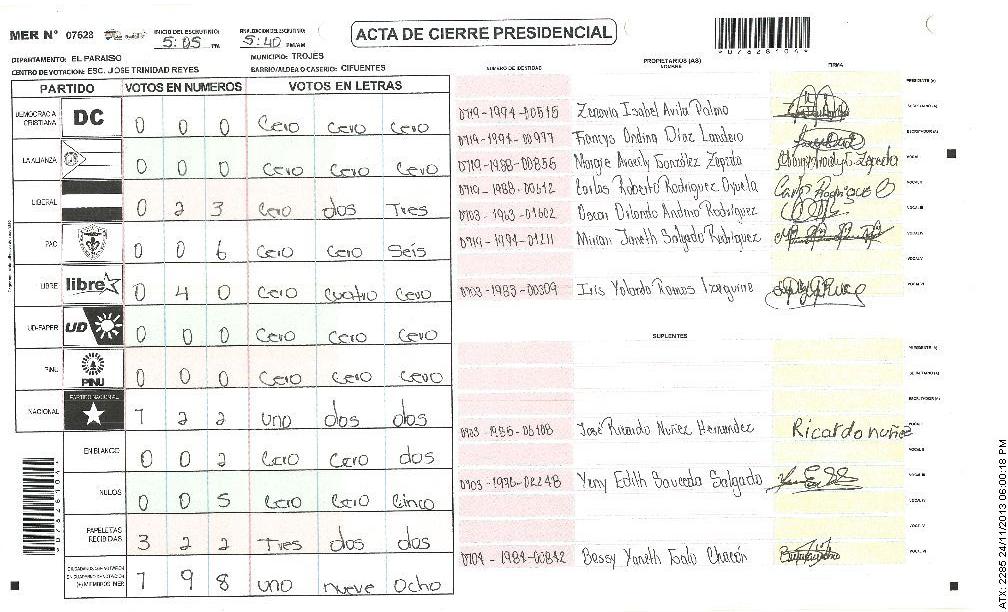 MER N° 07628
INICIO DEL ESCRUTINIO:
5:05 PM
FINALIZACION DEL ESCRUTINIO:
5:40 PM/AM
ACTA DE CIERRE PRESIDENCIAL
DEPARTAMENTO: EL PARAISO
MUNICIPIO: TROJES
CENTRO DE VOTACION: ESC. JOSE TRINIDAD REYES
BARRIO/ALDEA O CASERIO: CIFUENTES
PARTIDO VOTOS EN NUMEROS VOTOS EN LETRAS
DEMOCRACIA CRISTIANA DC 0 0 0 Cero cero cero
LA ALIANZA 0 0 0 Cero cero cero
LIBERAL 0 2 3 Cero dos Tres
PAC 0 0 6 Cero Cero Seis
LIBRE libre 0 4 0 Cero Cuatro Cero
UD-FAPER UD 0 0 0 Cero Cero Cero
PINU PINU 0 0 0 Cero Cero Cero
NACIONAL PARTIDO NACIONAL 1 2 2 uno dos dos
EN BLANCO 0 0 2 Cero Cero dos
NULOS 0 0 5 Cero Cero Cinco
PAPELETAS RECIBIDAS 3 2 2 Tres dos dos
(+) MIEMBROS MER 1 9 8 uno nueve Ocho
PROPIETARIOS (AS)
NUMERO DE IDENTIDAD NOMBRE FIRMA
PRESIDENTE (A)
0719-1994-00515 Zenovia Isabel Avila Palmo SECRETARIO (A)
0719-1991-00977 Francys Ondina Díaz Landero ESCRUTADOR (A)
0719-1988-00856 Margie Aracely González Zepeda VOCAL I
0719-1988-00612 Carlos Roberto Rodriguez Oyuela Carlos Rodriguez O VOCAL II
0703-1963-01602 Oscar Orlando Andino Rodríguez VOCAL III
0719-1991-01211 Mirian Janeth Salgado Rodríguez VOCAL IV
VOCAL V
0703-1983-00309 Iris Yolanda Ramos Izaguirre VOCAL VI
SUPLENTES
PRESIDENTE (A)
SECRETARIO (A)
ESCRUTADOR (A)
0703-1985-05108 José Ricardo Nuñez Hernandez Ricardo nuñez VOCAL I
VOCAL II
0703-1976-02248 Yeny Edith Sauceda Salgado VOCAL III
VOCAL IV
VOCAL V
0704-1984-00842 Bessy Yaneth Chacón VOCAL VI
ATX: 2285 24/11/2013 06:00:18 PM